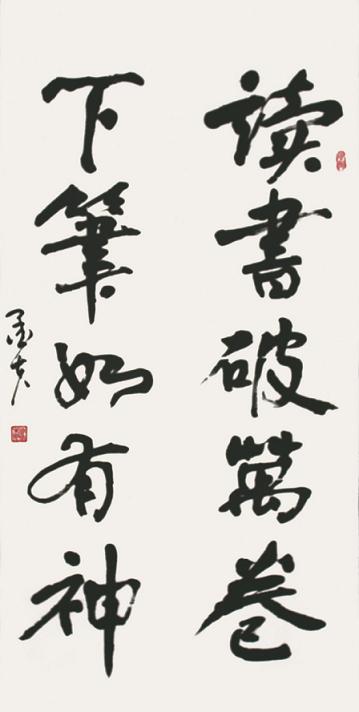 读書破萬卷
下筆如有神